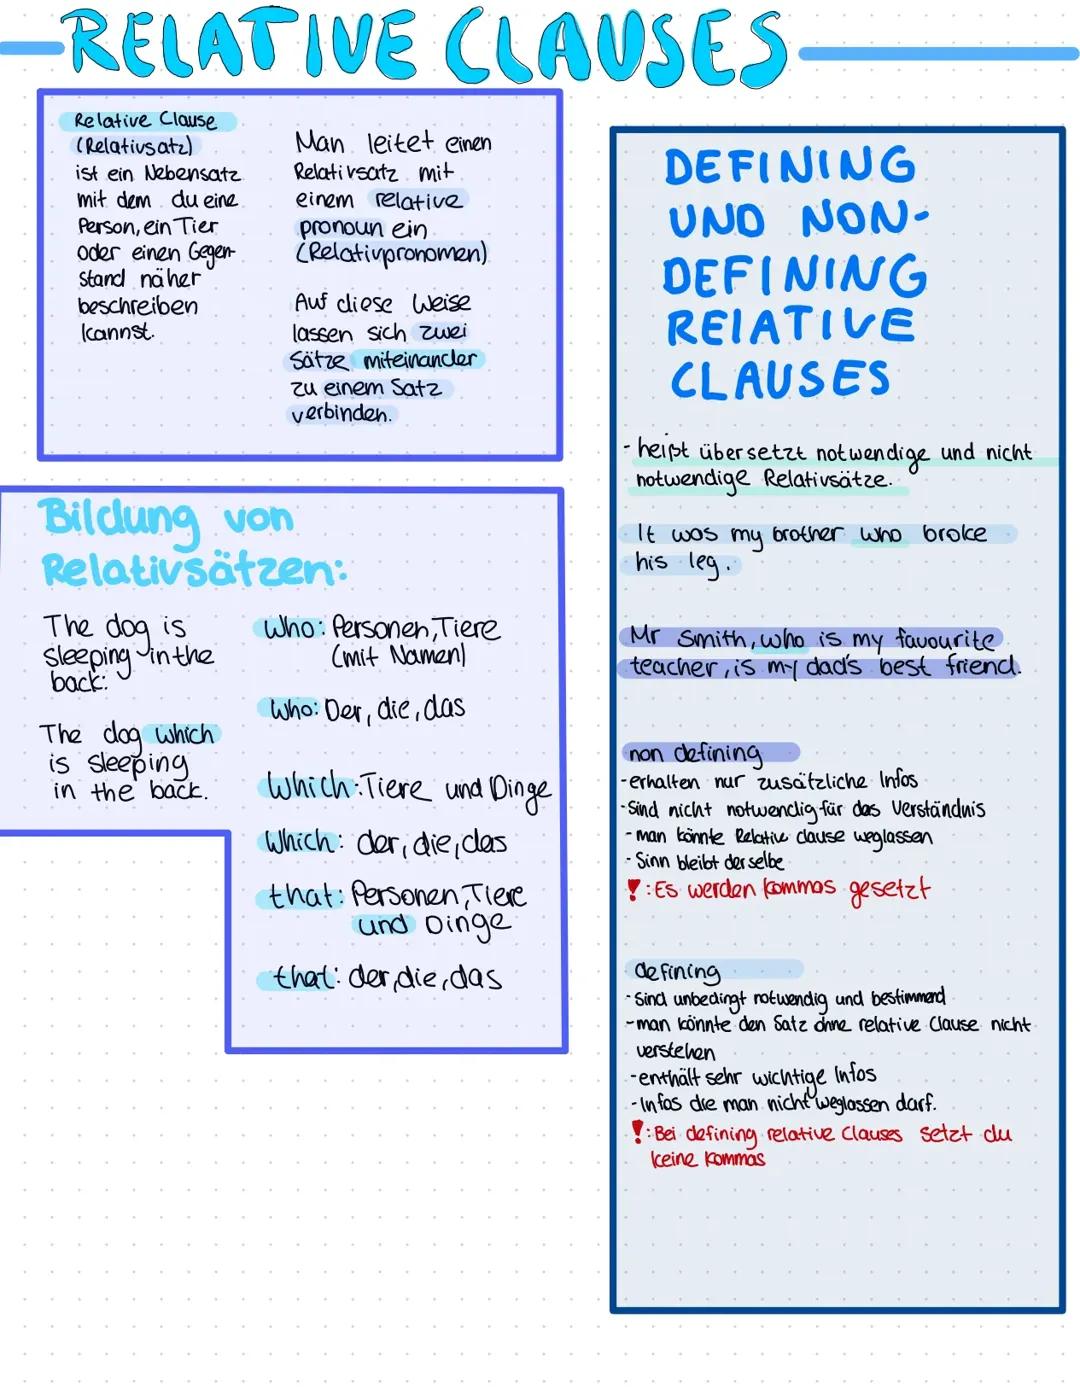 RELATIVE CLAUSES
Relative Clause
(Relativsatz)
ist ein Nebensatz
mit dem du eine
Person, ein Tier
oder einen Gegen-
stand näher
beschreiben
kannst.
Man leitet einen
Relativsatz mit
einem relative
pronoun ein
(Relativpronomen)
Auf diese Weise
lassen sich zwei
Sätze miteinander
zu einem Satz
verbinden.
Bildung von
Relativsätzen:
The dog is
sleeping in the
back:
The dog which
is sleeping
in the back.
Who: Personen, Tiere
(mit Namen)
Who: Der, die, das
Which: Tiere und Dinge
Which: der, die, das
that: Personen, Tiere
und Dinge
that: der, die, das
DEFINING
UND NON-
DEFINING
RELATIVE
CLAUSES
- heißt übersetzt notwendige und nicht
notwendige Relativsätze.
It was my brother who broke
his leg.
Mr Smith, who is my favourite
teacher, is my dad's best friend.
non defining
- erhalten nur zusätzliche Infos
- Sind nicht notwendig für das Verständnis
- man könnte Relative clause weglassen
- Sinn bleibt derselbe
!: Es werden Kommas gesetzt
defining
- Sind unbedingt notwendig und bestimmend
- man könnte den Satz ohne relative Clause nicht
verstehen
- enthält sehr wichtige Infos
- Infos die man nicht weglassen darf.
!: Bei defining relative Clauses setzt du
keine Kommas